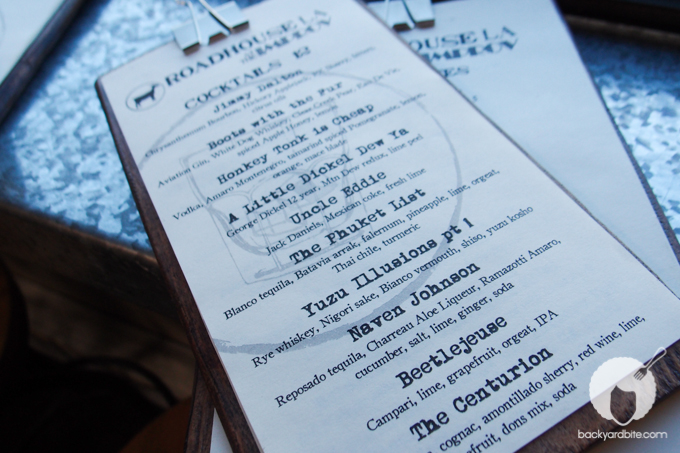 ROADHOUSE LA
COCKTAILS
Jimmy Dalton
citrus oils
Boots with the Fur
Aviation Gin, White Dog Whiskey, Clear Creek Pear, Eau De Vie,
spiced Apple Honey, lemon
Honkey Tonk is Cheap
Vodka, Amaro Montenegro, tamarind spiced Pomegranate, lemon,
orange, mace blade
A Little Dickel Dew Ya
George Dickel 12 year, Mtn Dew redux, lime peel
Uncle Eddie
Jack Daniels, Mexican coke, fresh lime
The Phuket List
Blanco tequila, Batavia arrak, falernum, pineapple, lime, orgeat,
Thai chile, turmeric
Yuzu Illusions pt 1
Rye whiskey, Nigori sake, Bianco vermouth, shiso, yuzu kosho
Naven Johnson
Reposado tequila, Charreau Aloe Liqueur, Ramazotti Amaro,
cucumber, salt, lime, ginger, soda
Beetlejeuse
Campari, lime, grapefruit, orgeat, IPA
The Centurion
cognac, amontillado sherry, red wine, lime,
dons mix, soda
HOUSE LA
backyardbite.com